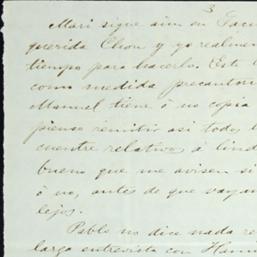 3
Mari sigue aún en Tacu
querida Chon y yo realmen
tiempo para hacerlo. Este
como medida precautori
Manuel tiene ó no copia
pienso remitir asi todo l
cuentre relativos á lind
bueno que me avisen si
ó no, antes de que vayan
lejos.
Pablo no dice nada re
larga entrevista con Hann